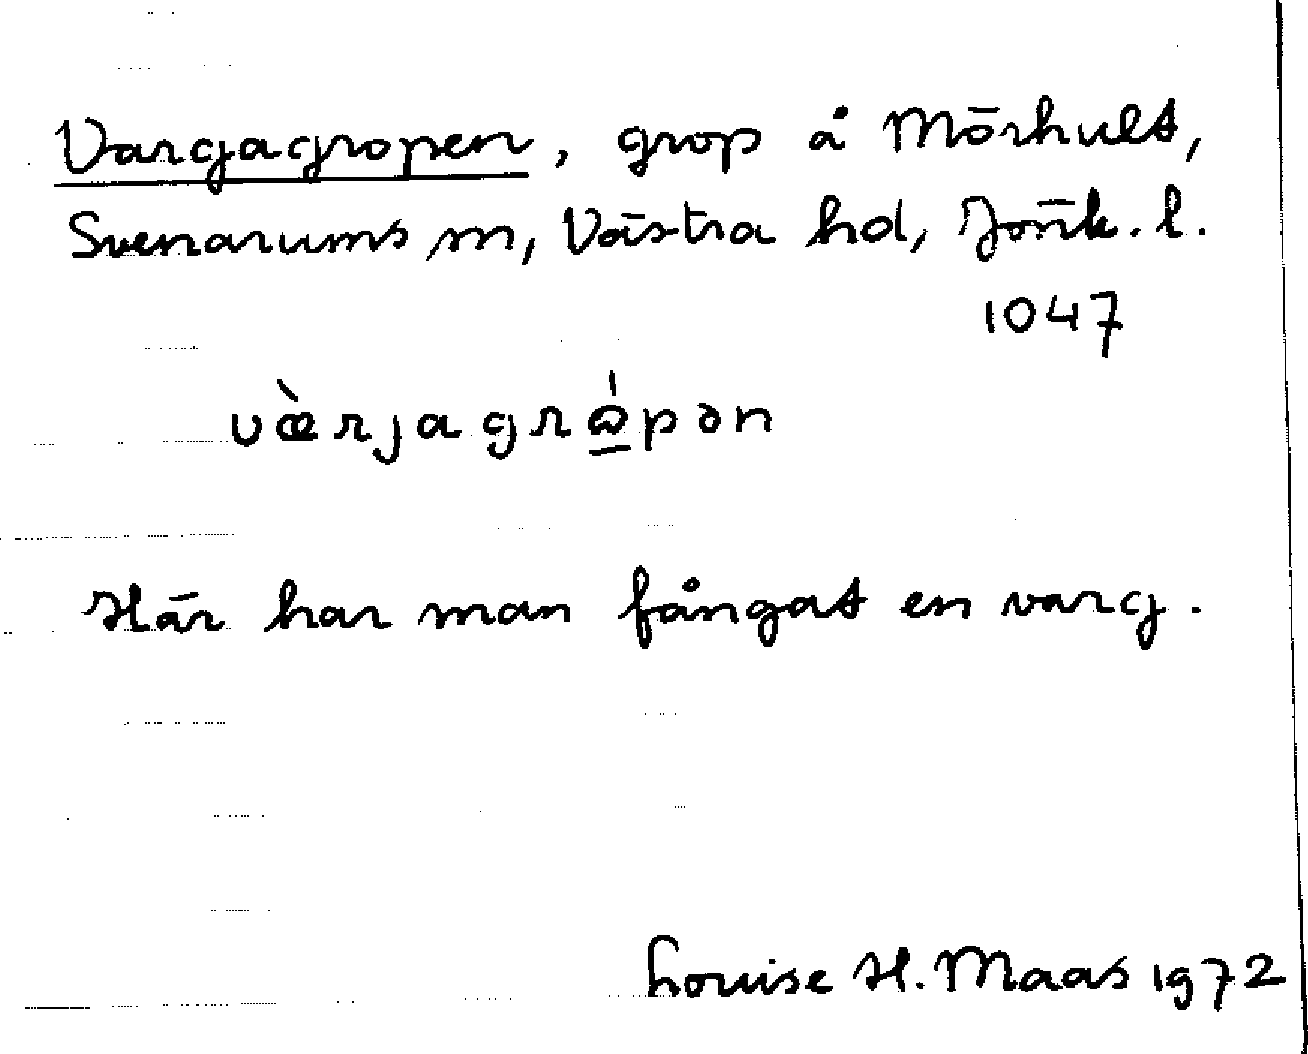 Vargagropen, grop å Mörhult,
Svenarums sn, Västra hd, Jönk. l.
1047
væ̀rjagrɷ̲́pən
Här har man fångat en varg.
Louise H. Maas 1972